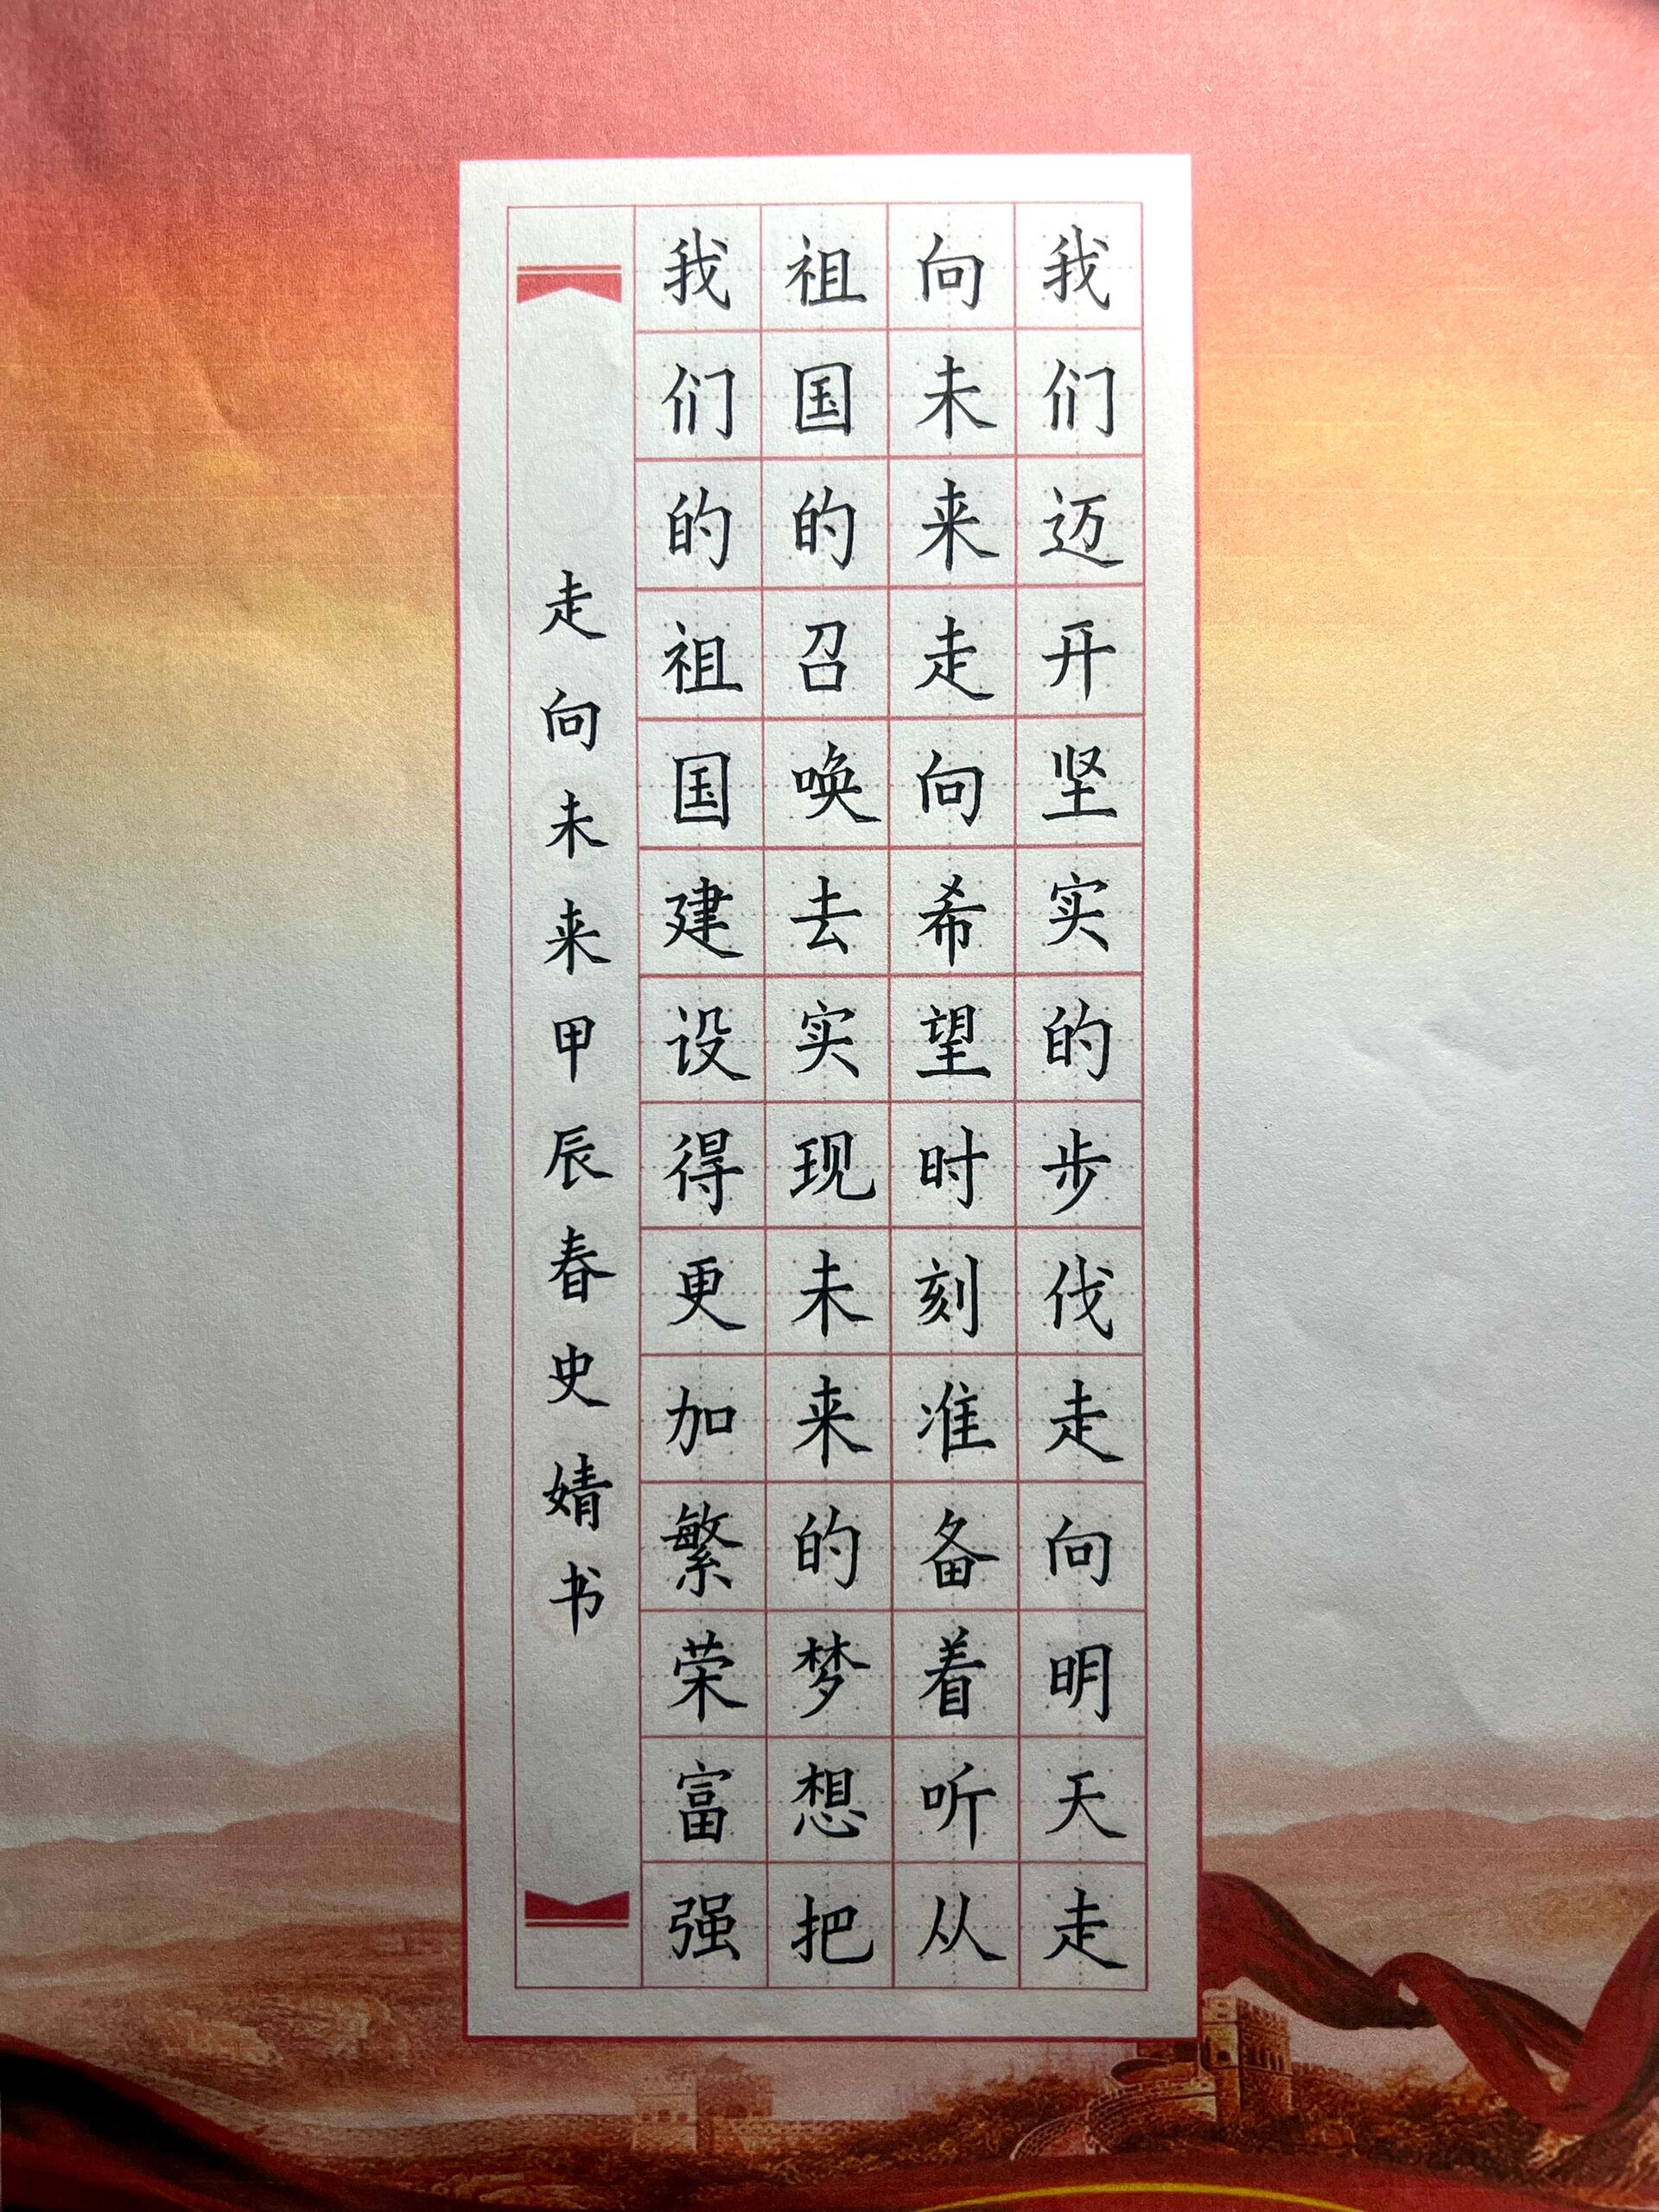 我们迈开坚实的步伐走向明天走
向未来走向希望时刻准备着听从
祖国的召唤去实现未来的梦想把
我们的祖国建设得更加繁荣富强
走向未来甲辰春史婧书